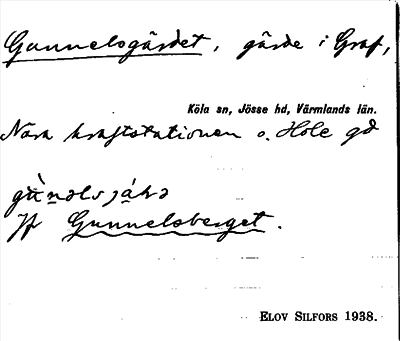 Gunnelsgärdet, gärde i Graf,
Köla sn, Jösse hd, Värmlands län.
Nära kraftstationen o. Hole gd
Jfr Gunnelsberget.
ELOV SILFORS 1938.